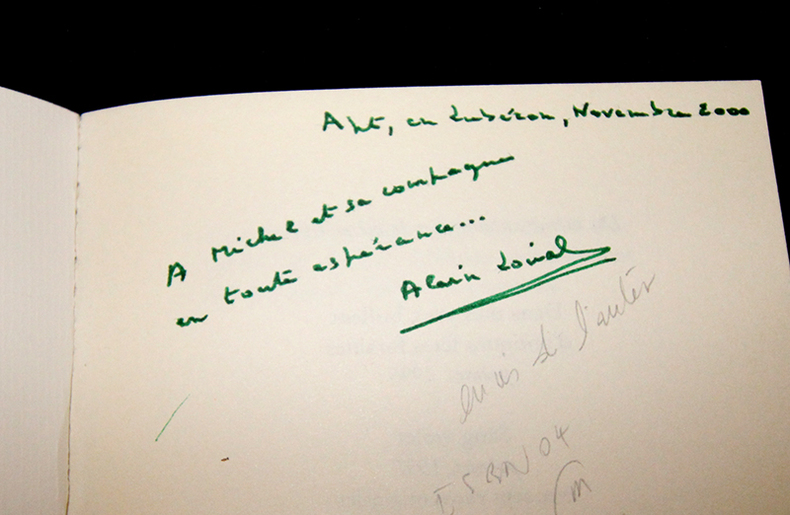 Apt, en Lubéron, Novembre 2000
A Michel et sa compagne
en toute espérance...
Alain
de l'auter
ISBN 04